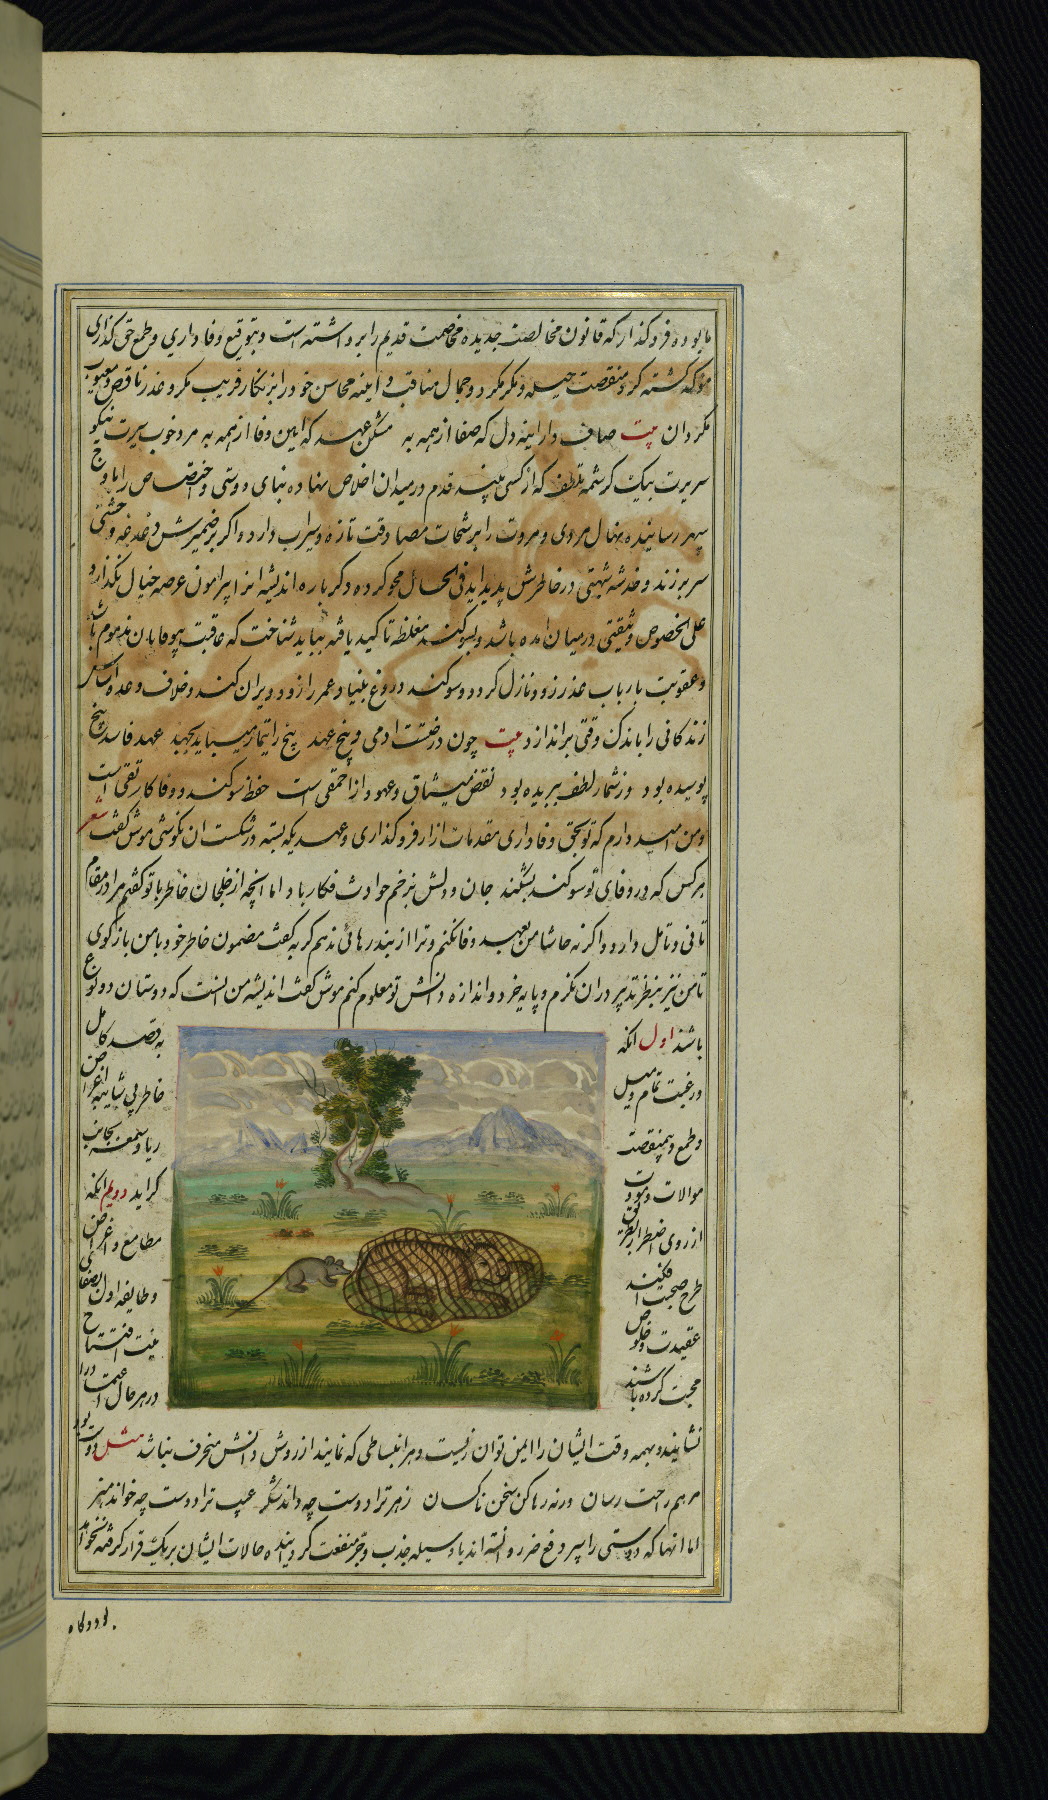 ما بوده فرو گذار که قانون مخالصت جدیده مخاصمت قدیم را برداشته است و بتوقیع وفاداری و طمع حق گذاری
موکد گشته گرد منقصت حیله و مکر مگرد و جمال مناقب و اینه محاسن خود را بزنگار فریب مکر و غدر ناقص و معیوب
مگردان بیت صاف دار اینه دل که صفا از همه به مشکن عهد که ایین وفا از همه به مرد خوب سیرت نیکو
سریرت بیک کرشمه تلطف که از کسی بیند قدم در میدان اخلاص نهاده بنای دوستی و اختصاص را باوج
سپهر رسانیده نهال مردی و مروت را برشحات مصادقت تازه و سیراب دارد و اگر بر ضمیرش دغدغه وحشتی
سر برزند و خدشه شبهتی در خاطرش پدید اید فی الحال محو کرده دگر باره اندیشه انرا پیرامون عرصه خیال نگذارد
علی الخصوص وثیقتی در میان امده باشد و بسوکند مغلظ تاکید یافته بباید شناخت که عاقبت بیوفایان مذموم باشد
و عقوبت بارباب غدر زود نازل گردد و سوکند دروغ بنیاد عمر را زود ویران کند و خلاف وعده اساس
زندکانی را باندک وقتی براندازد بیت چون درختست ادمی و بیخ عهد بیخ را تیمار میباید بجهد عهد فاسد بیخ
پوسیده بود وز شمار لطف ببریده بود نقض میثاق و عهود از احمقی است حفظ سوکند و وفا کار تقی است
و من امید دارم که تو بحق وفاداری مقدمات ازار فرو گذاری و عهدیکه بسته در شکست ان نکوشی موش گفت شعر
هرکس که در وفای تو سوکند بشکند جان و دلش بزخم حوادث فکار باد اما انچه از خلجان خاطر با تو گفتم مرا در مقام
تانی و تامل دارد و اگر نه حاشا من بعهد وفا نکنم و ترا از بند رهائی ندهم گربه گفت مضمون خاطر خود با من بازگوی
تا من نیز بنظر تدبیر در ان نگرم و پایه خرد و اندازه دانش تو معلوم کنم موش گفت اندیشه من انست که دوستان دو نوع
باشند اول انکه به قصد کامل
و رغبت تمام و میل خاطر بی شایبه اغراض
و طمع و بیمنقصت ریا و سمعه بجانب
موالات و مودت گراید دویم انکه
از روی اضطرار بطریق مطامع و اغراض
طرح صحبت افکنند و طایفه اول بصفای
عقیدت و خلوص نیت افتتاح
محبت کرده باشند در هر حال اعتماد را
نشایند و بهمه وقت ایشان را ایمن توان زیست و هر انبساطی که نمایند از روش دانش منحرف نباشد مثل دوست بود
مرهم راحت رسان ورنه رها کن سخن ناکسان زهر ترا دوست چه داند شکر عیب ترا دوست چه خواند هنر
اما انها که دوستی را سپر دفع ضرر دانسته اند یا وسیله جذب و جر منفعت گردانیده حالات ایشان بر یک قرار گرفته نخواهد
بود و گاه